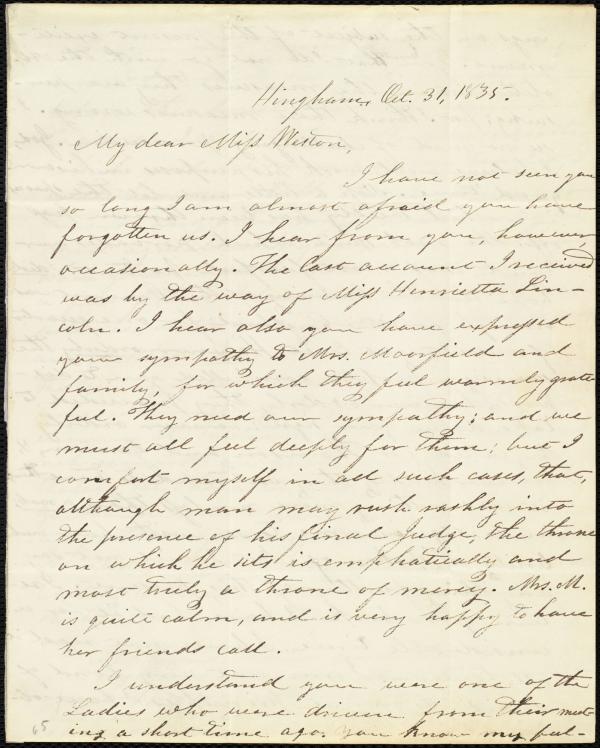 Hingham, Oct. 31, 1835.
My dear Miss Weston,
I have not seen you
so long I am almost afraid you have
forgotten us. I hear from you, however,
occasionally. The last account I received
was by the way of Miss Henrietta Lin-
coln. I hear also you have expressed
your sympathy to Mrs. Moorfield and
family, for which they feel warmly grate
ful. They need our sympathy; and we
must all feel deeply for them; but I
comfort myself in all such cases, that,
although man may rush rashly into
the presence of his final Judge, the throne
on which he sits is emphatically and
most truly a throne of mercy. Mrs. M.
is quite calm, and is very happy to have
her friends call.
I understand you were one of the
Ladies who were driven from their meet-
ing a short time ago. You know my feel-
65